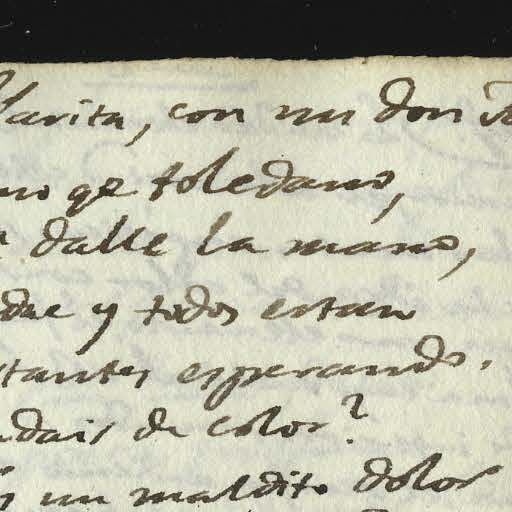 Clarita, con un don
no qe toledano,
dalle la mano,
y todos estan
esperando.
dais de color?
un maldito dolor